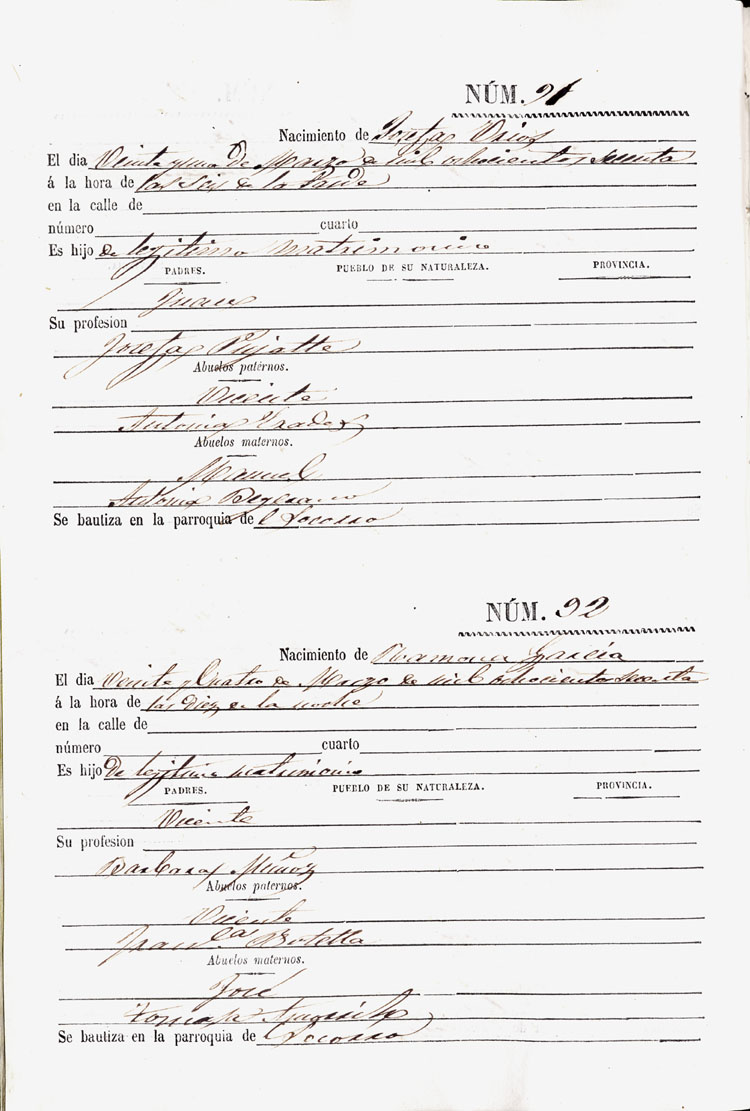 NÚM. 91
Nacimiento de Josefa
El dia Veinte y uno de Marzo de mil ochocientos secenta
á la hora de las Seis de la Tarde
en la calle de
número cuarto
Es hijo de legitimo matrimonio
PADRES. PUEBLO DE SU NATURALEZA. PROVINCIA.
Juan
Su profesion
Josefa Pujalte
Abuelos paternos.
Vicente
Antonia
Abuelos maternos.
Manuel
Antonia
Se bautiza en la parroquia de l Socorro
NÚM. 92
Nacimiento de Ramona Garcia
El dia Veinte y Cuatro de Marzo de mil ochocientos secenta
á la hora de las diez de la noche
en la calle de
número cuarto
Es hijo De legitimo matrimonio
PADRES. PUEBLO DE SU NATURALEZA. PROVINCIA.
Vicente
Su profesion
Barbara Muñoz
Abuelos paternos.
Vicente
Fran.ca Botella
Abuelos maternos.
José
Tomasa
Se bautiza en la parroquia de l Socorro